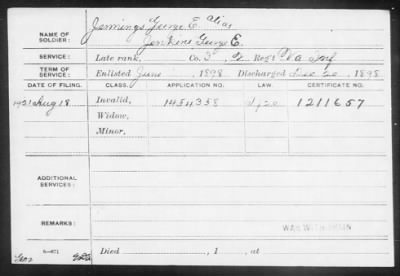 Jennings George E. alias
NAME OF SOLDIER: Jenkins George E.
SERVICE: Late rank, Co. Reg't Inf
TERM OF SERVICE: Enlisted June , 1898 Discharged Dec 20 , 1898
DATE OF FILING. CLASS. APPLICATION NO. LAW. CERTIFICATE NO.
1921 Aug 18 Invalid, 1454358 1211657
Widow,
Minor,
ADDITIONAL SERVICES:
REMARKS: WAR WITH SPAIN
Died , 1 , at